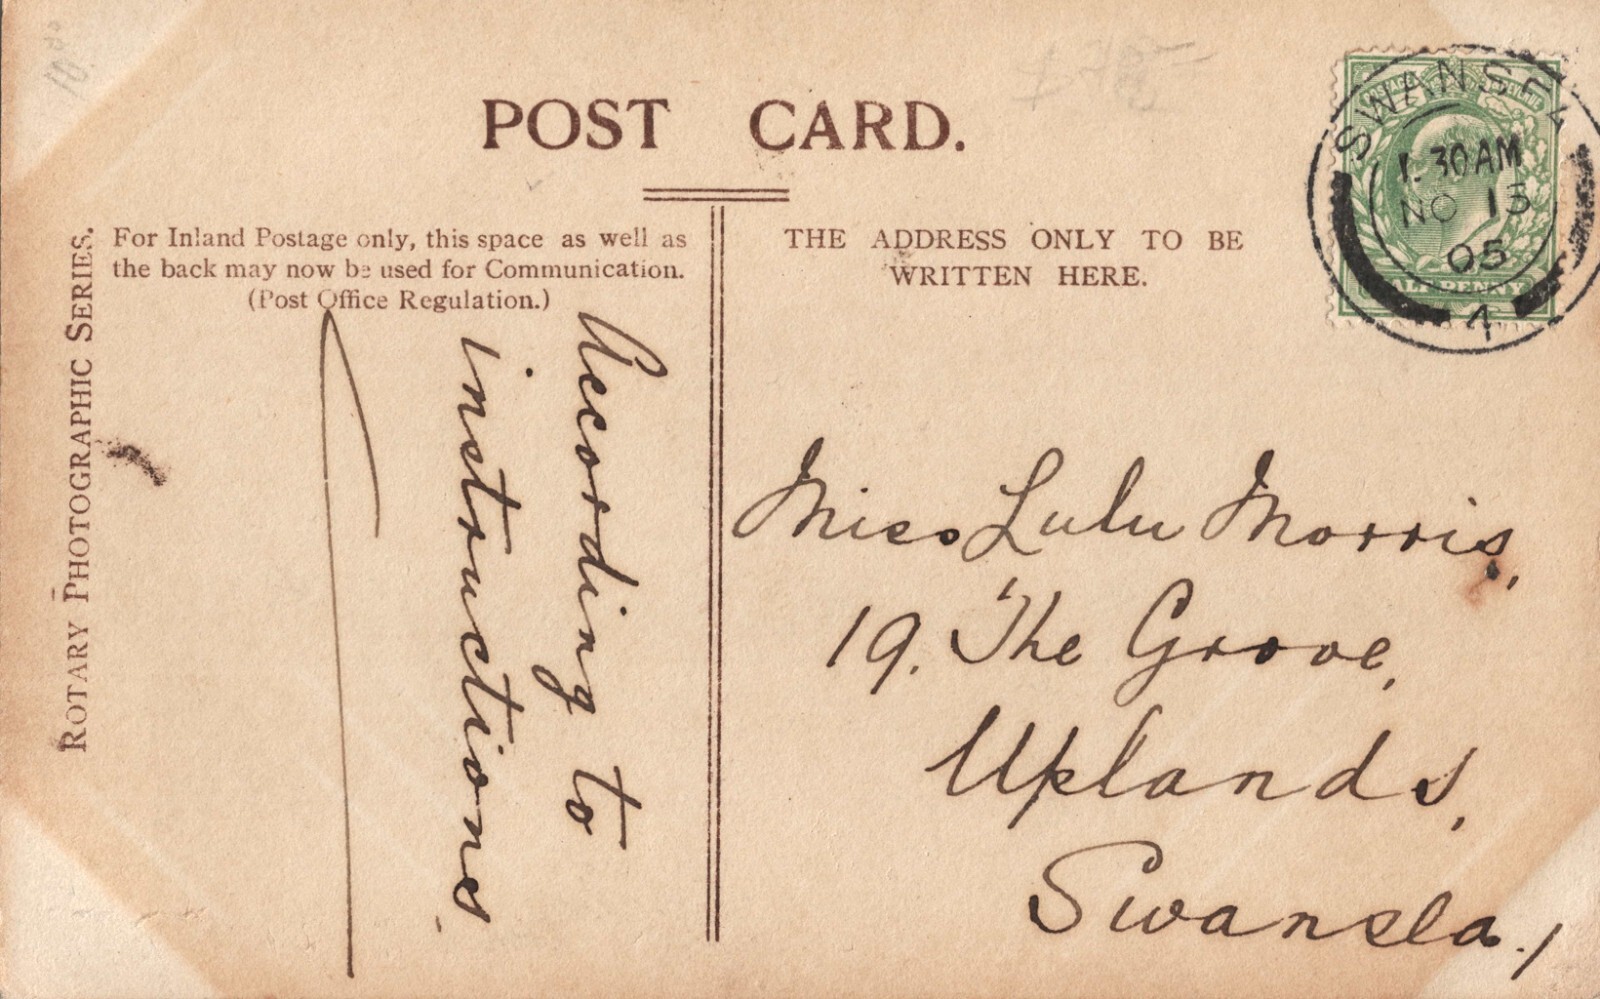 POST CARD.
ROTARY PHOTOGRAPHIC SERIES.
For Inland Postage only, this space as well as
the back may now be used for Communication.
(Post Office Regulation.)
According to
instructions
THE ADDRESS ONLY TO BE
WRITTEN HERE.
SWANSEA
1.30AM
NO 13
05
4
HALFPENNY
Miss Lulu Morris,
19. The Grove,
Uplands,
Swansea.